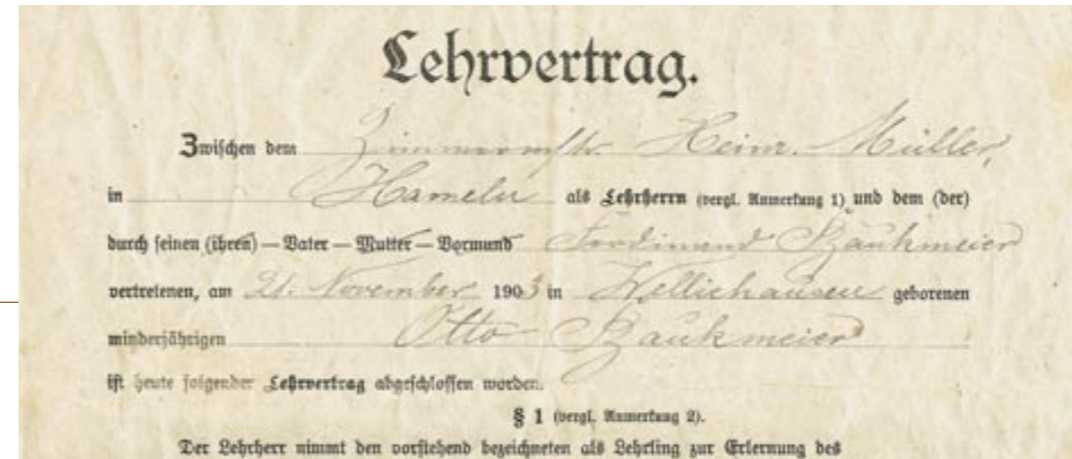 Lehrvertrag.
Zwischen dem Zimmermstr. Heinr. Müller,
in Hameln als Lehrherrn (vergl. Anmerkung 1) und dem (der)
durch seinen (ihren) — Vater — Mutter — Vormund Ferdinand
vertretenen, am 21. November 1903 in geborenen
minderjährigen Otto
ist heute folgender Lehrvertrag abgeschlossen worden.
§ 1 (vergl. Anmerkung 2).
Der Lehrherr nimmt den vorstehend bezeichneten als Lehrling zur Erlernung des